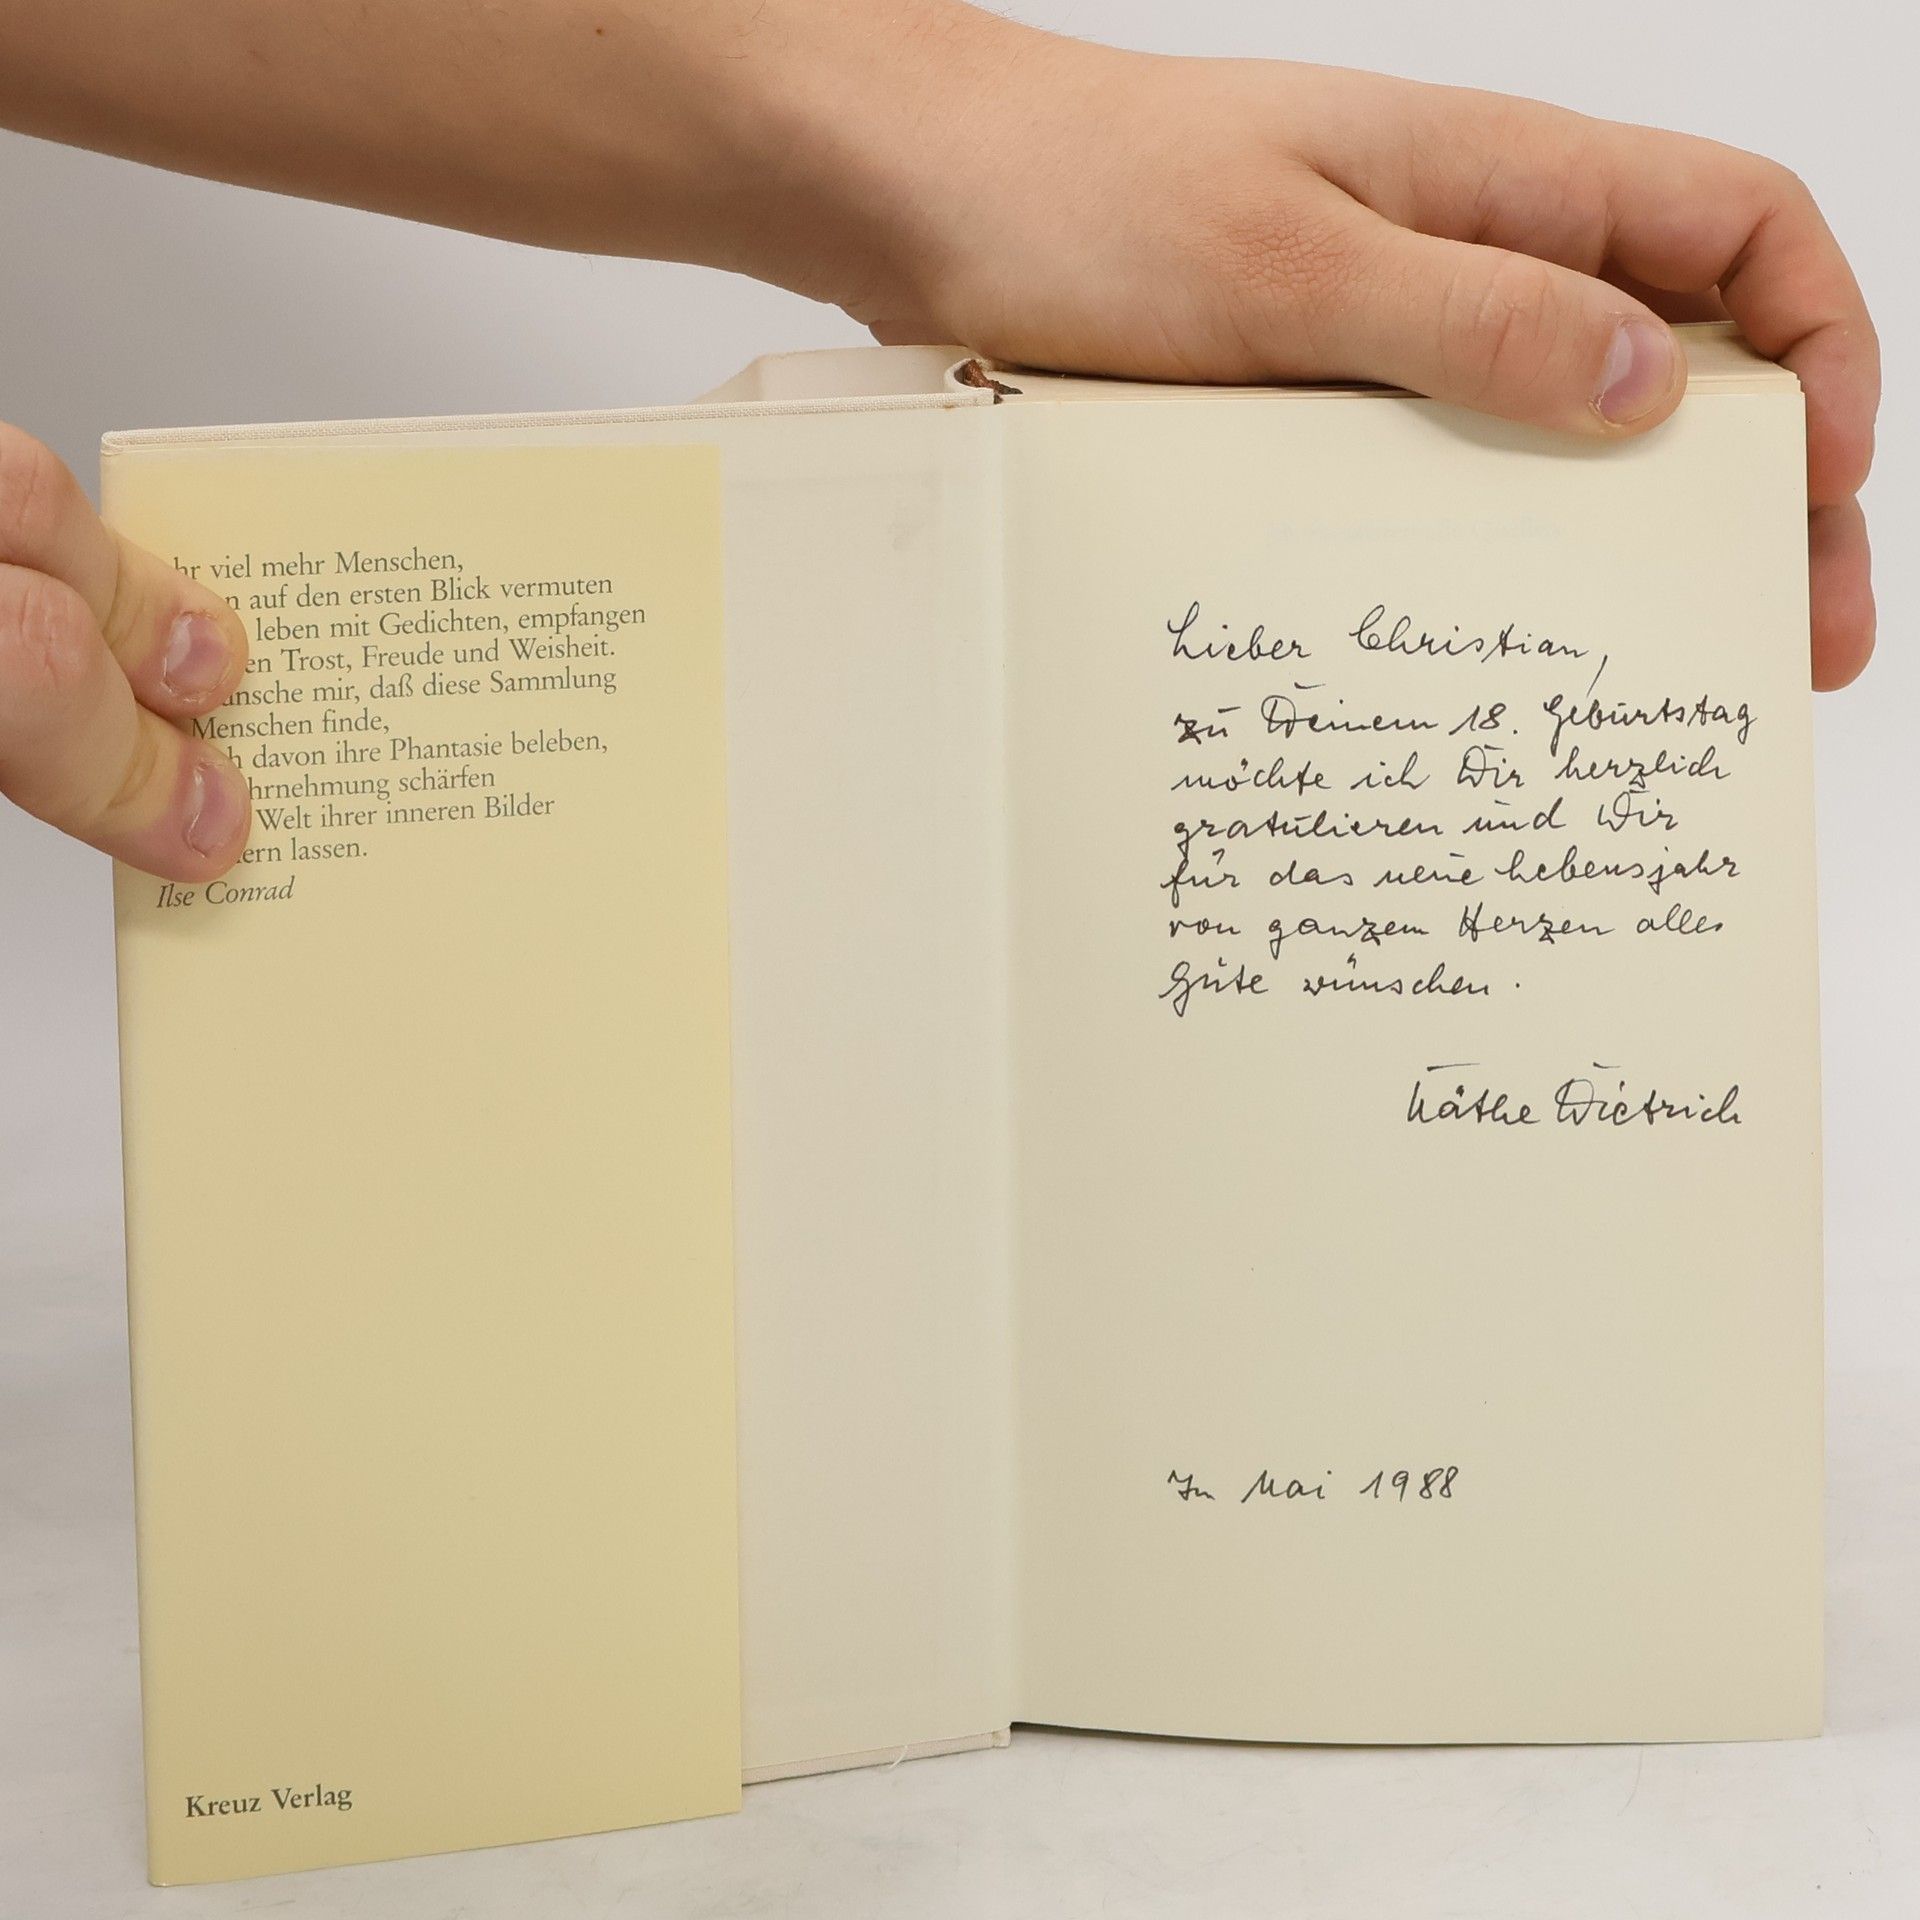 hr viel mehr Menschen,
n auf den ersten Blick vermuten
leben mit Gedichten, empfangen
en Trost, Freude und Weisheit.
ünsche mir, daß diese Sammlung
Menschen finde,
h davon ihre Phantasie beleben,
hrnehmung schärfen
Welt ihrer inneren Bilder
ern lassen.
Ilse Conrad
Kreuz Verlag
Lieber Christian,
zu Deinem 18. Geburtstag
möchte ich Dir herzlich
gratulieren und Dir
für das neue Lebensjahr
von ganzem Herzen alles
Gute wünschen.
Käthe Dietrich
Im Mai 1988